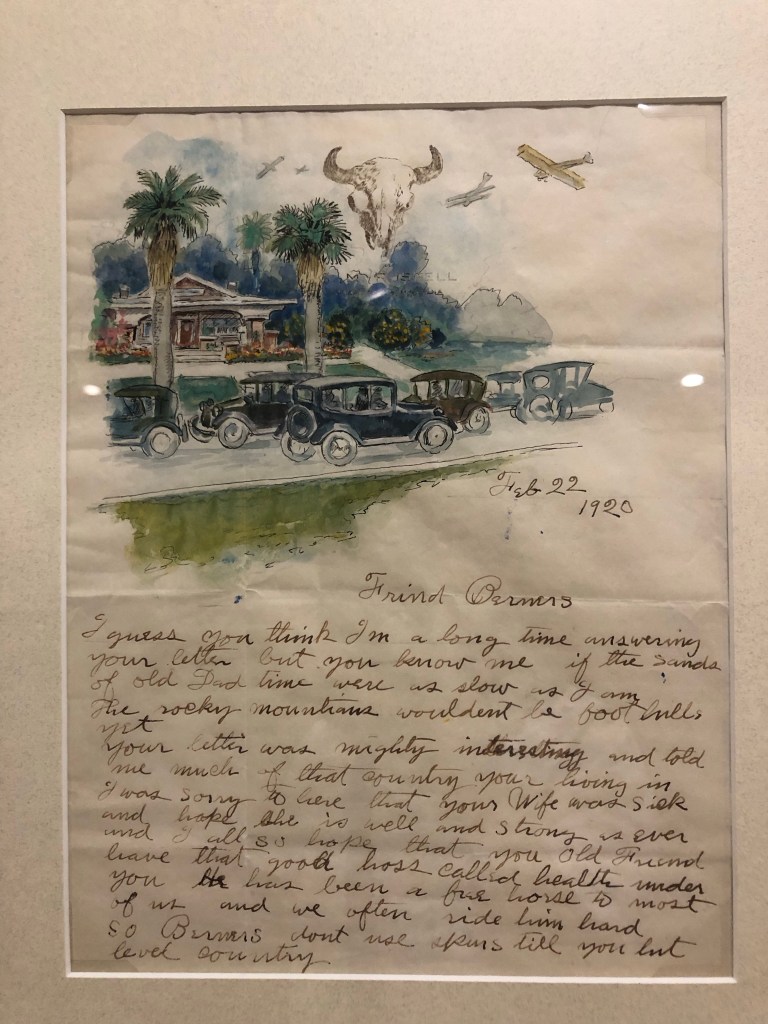 M RUSSELL
Feb 22
1920
Frind Berners
I guess you think Im a long time answering
your letter but you know me if the sands
of old Dad time were as slow as I am
the rocky mountians wouldent be foot hills
yet
your letter was mighty interesting and told
me much of that country your living in
I was sorry to here that your Wife was sick
and hope she is well and strong as ever
and I all so hope that you Old Friend
have that good hoss called health under
you He has been a fue horse to most
of us and we often ride him hard
so Berners dont use spurs till you hit
level country